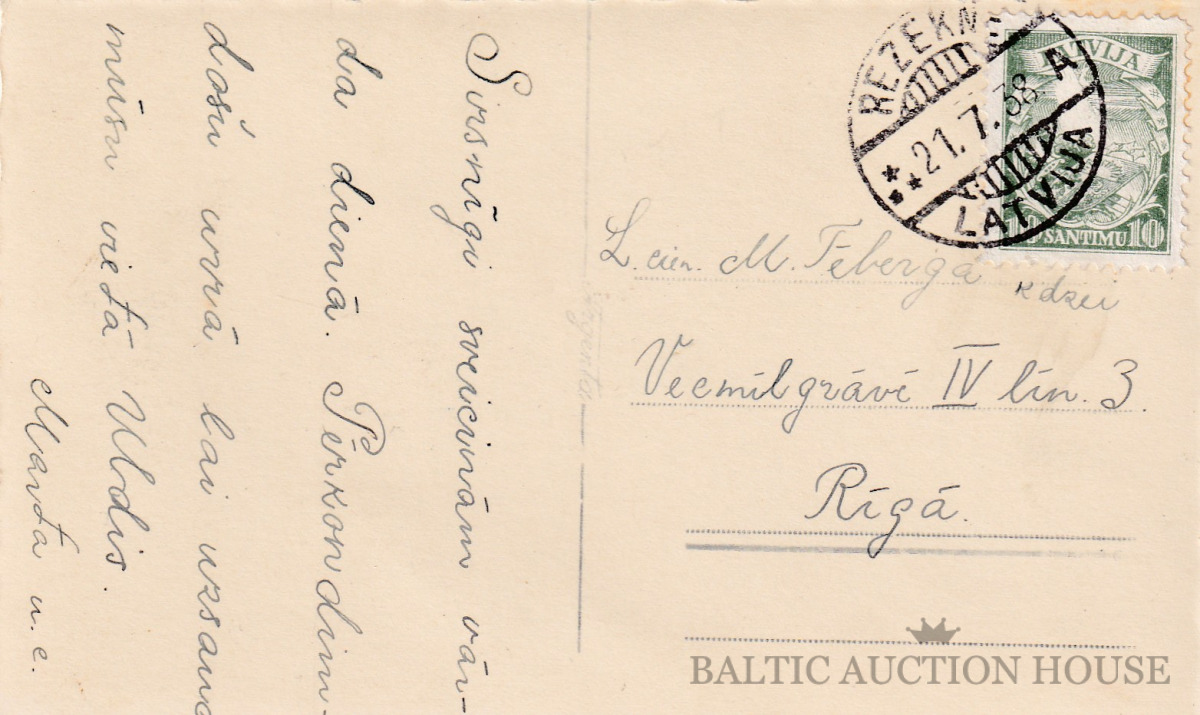 Sirsnīgi sveicinām vār-
da dienā. Pērkondim-
došu urrā lai uzsauc
mūsu vietā Uldis.
Marta u. c.
REZEKNE
21.7.38
A
LATVIJA
LATVIJA
10 SANTIMU 10
L. cien. M. Tēberga
kdzei
Vecmīlgrāvī IV lin. 3.
Rīgā.
BALTIC AUCTION HOUSE